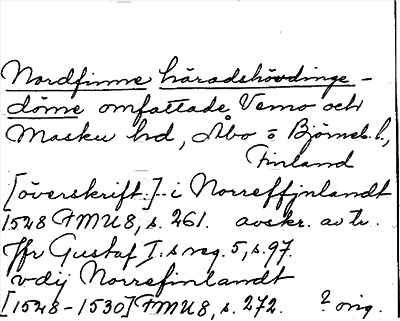 Nordfinne häradshövdinge-
döme omfattade Vemo och
Masku hd, Åbo = Björneb. l.,
Finland
[överskrift.] i Norreffjnlandt
1528 FMU 8, s. 261. avskr. av tr.
Jfr Gustaf I.s reg. 5, s. 97.
vdij Norrefinlandt
[1528-1530] FMU 8, s. 272. ? orig.